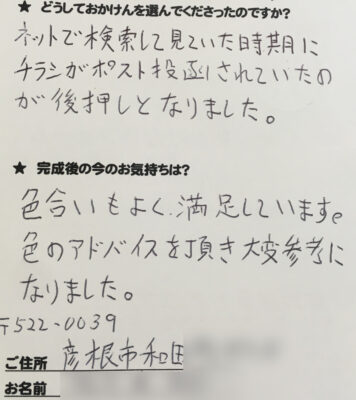 ★ どうしておかけんを選んでくださったのですか?
ネットで検索して見ていた時期に
チラシがポスト投函されていたの
が後押しとなりました。
★ 完成後の今のお気持ちは?
色合いもよく、満足しています。
色のアドバイスを頂き大変参考に
なりました。
〒522-0039
ご住所 彦根市和田
お名前